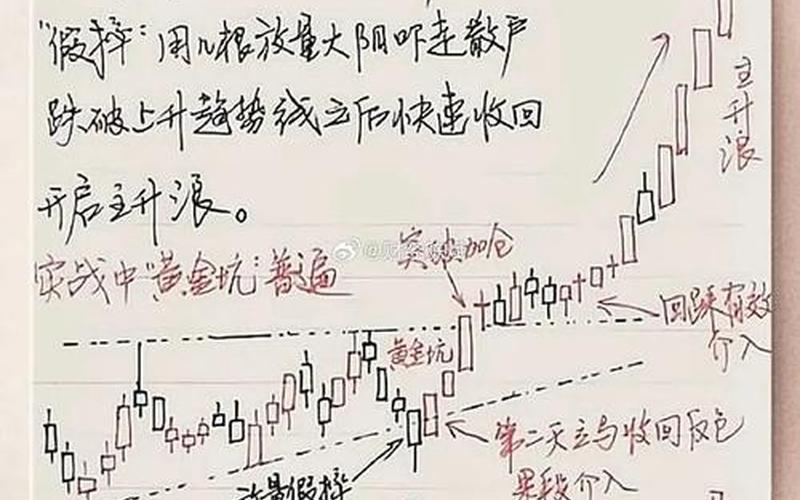 "假摔": 用几根放量大阴吓走散户
跌破上升趋势线立后快速收回
开启主升浪。
实战中"黄金坑"普遍
突破加仓
主升浪
回踩有效
介入
黄金坑
第二天立与收回反包
果段介入
放量假摔